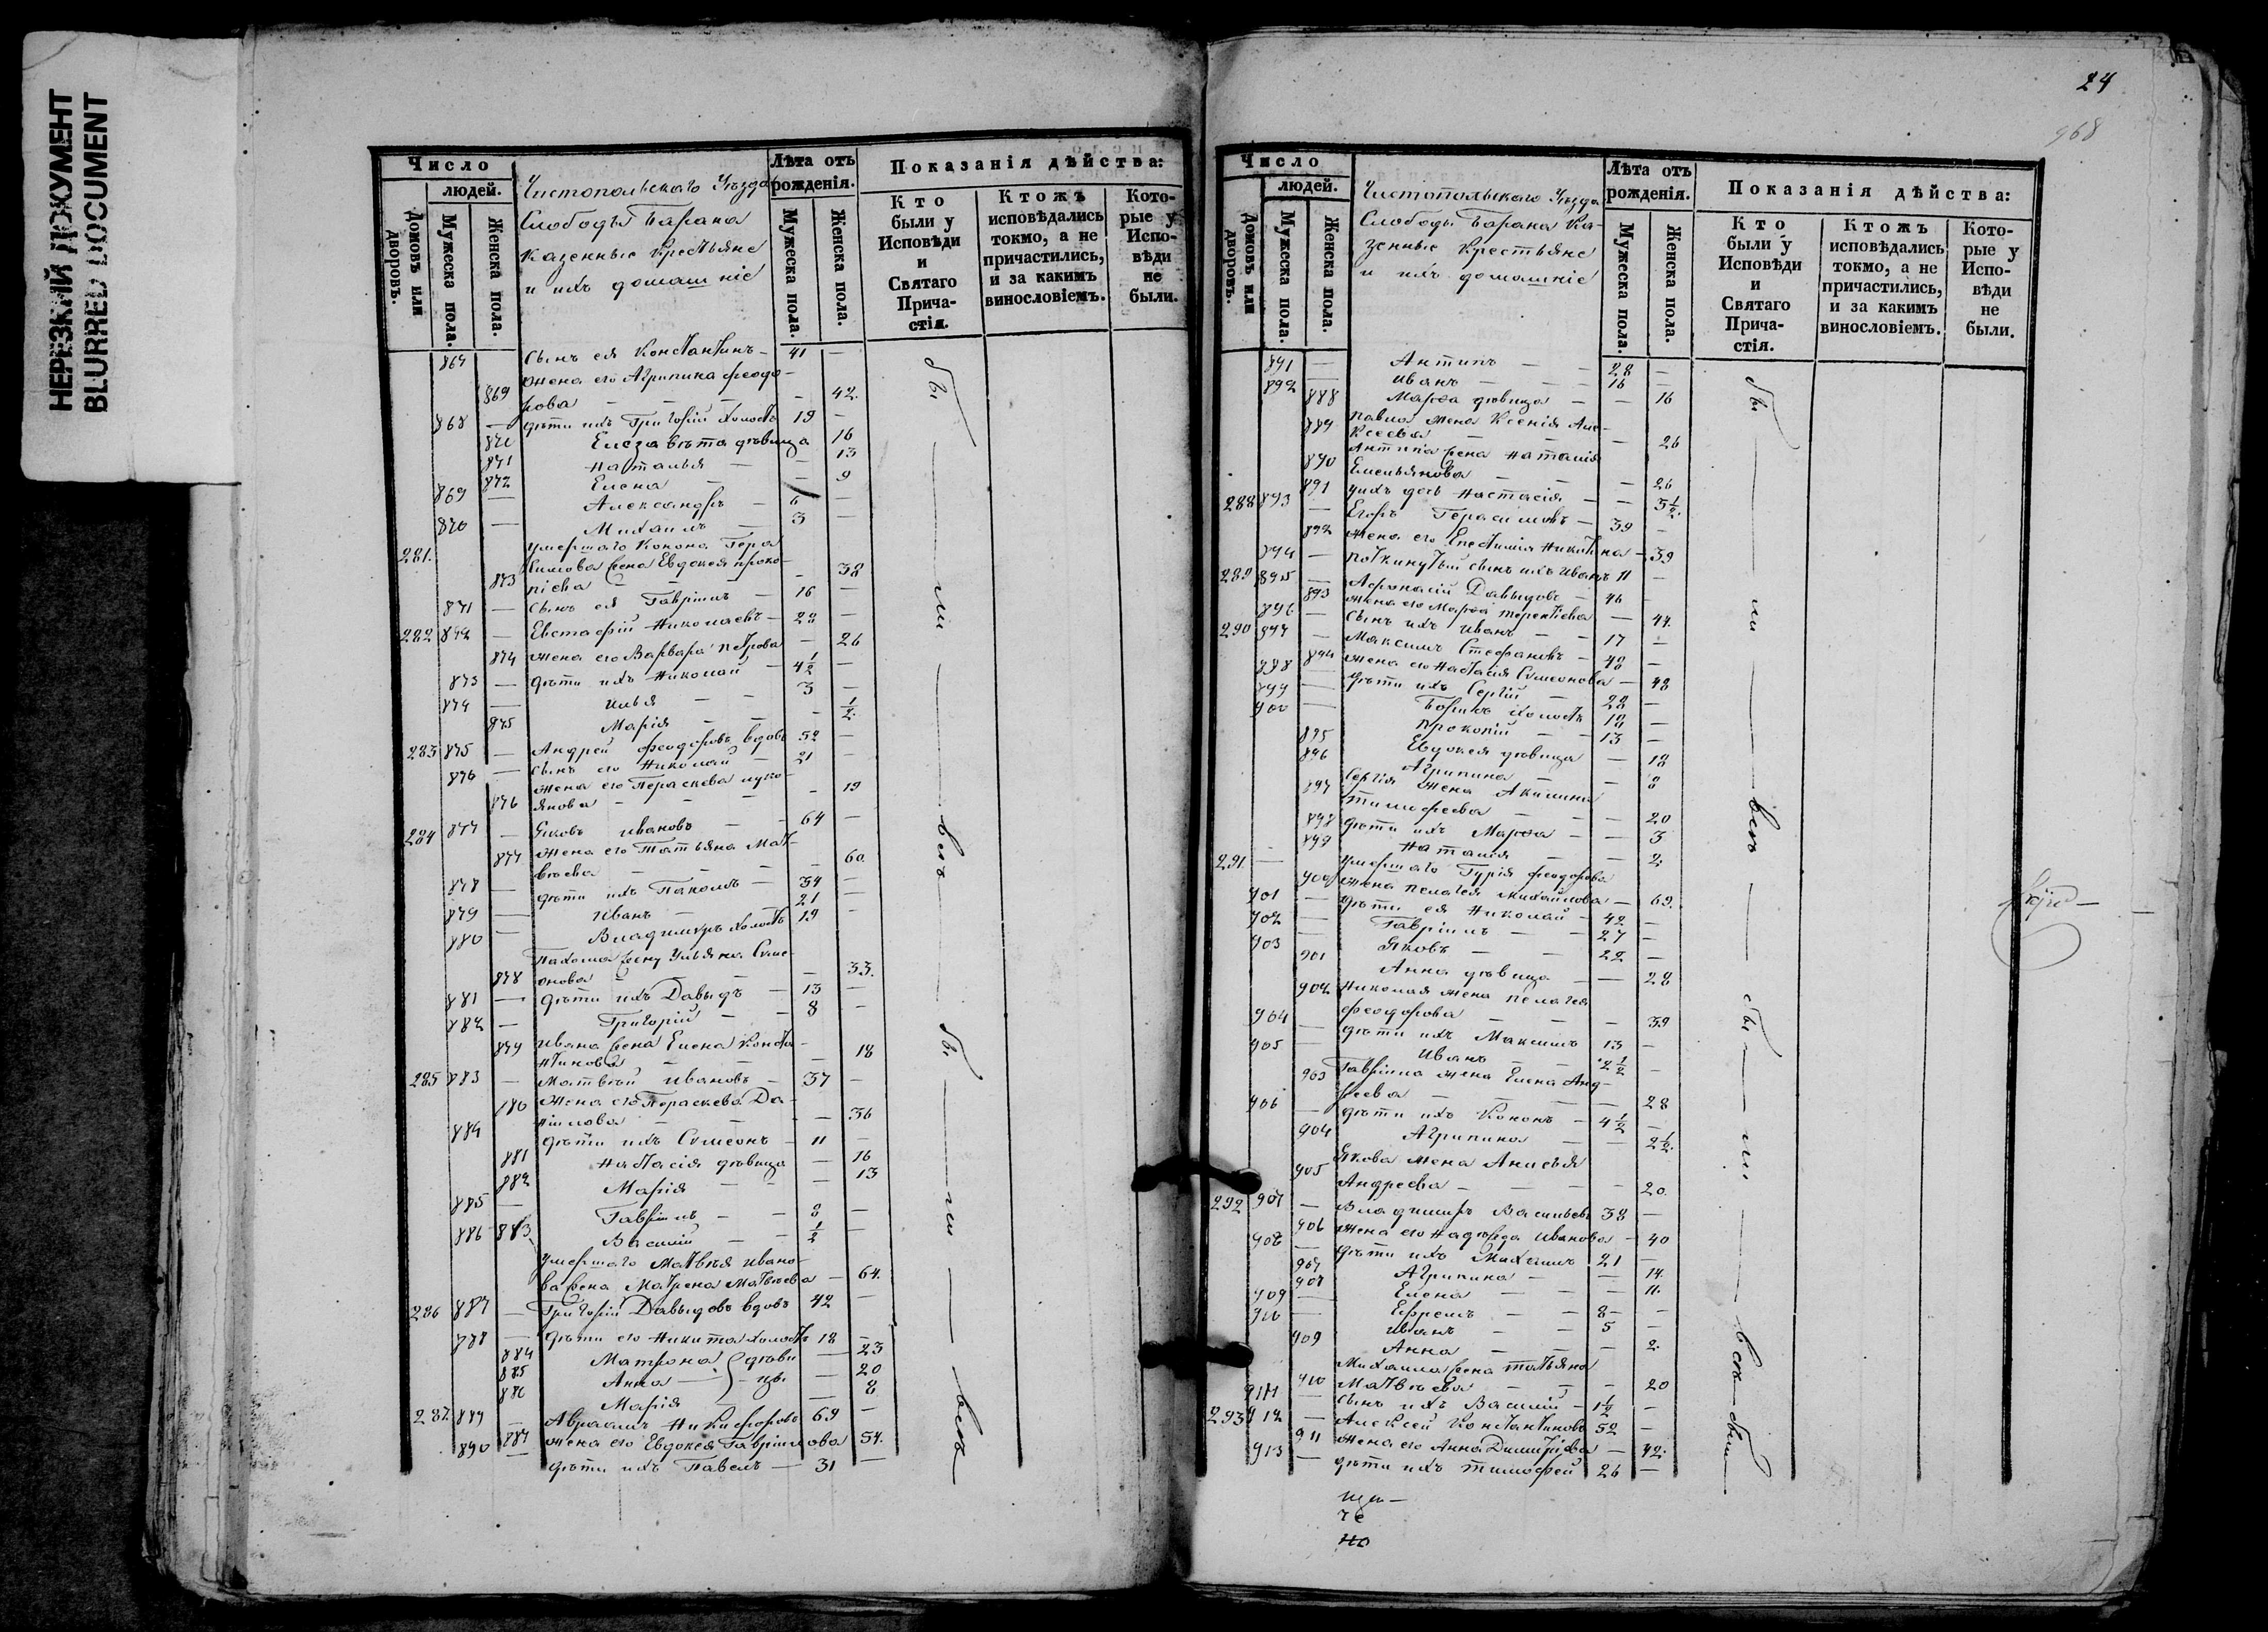 НЕРЕЗКИЙ ДОКУМЕНТ
BLURRED DOCUMENT
Число
людей.
Домовъ или дворовъ.
Мужеска пола.
Женска пола.
Чистопольскаго Уѣзда
Слободы Барана
казенные крестьяне
и ихъ домашніе
Лѣта отъ рожденія.
Мужеска пола.
Женска пола.
Показанія дѣйства:
Кто были у Исповѣди и Святаго Прича-стія.
Ктожъ исповѣдались токмо, а не причастились, и за какимъ винословіемъ.
Кото-рые у Испо-вѣди не были.
867 Сынъ ея Константинъ - 41 —
жена его Агрипина Феодо-
869 рова - 42.
868 — дѣти ихъ Григорій холостъ 19 —
870 Елезавета дѣвица 16
871 Наталья — 13
872 Елена — 9
869 — Александръ - 6 —
870 — Михаилъ — 3 —
281. умершаго Конона Гера
симова жена Евдокея Проко-
873 піева — 38
871 — сынъ ея Гавріилъ — 16 —
282 872 — Евстафій Николаевъ - 28 —
874 жена его Варвара Петрова — 26
873 — дѣти ихъ Николай — 4 1/2 —
874 — Илья — 3 —
875 Марія — 1/2.
283 875 — Андрей Феодоровъ вдовъ 52 —
876 — сынъ его Николай — 21 —
жена его Параскева Луко-
876 янова — 19
284 877 — Яковъ Ивановъ — 64 —
877 жена его Татьяна Мат-
вѣева — 60.
878 — дѣти ихъ Пахомъ — 34 —
879 — Иванъ — 21 —
880 — Владимиръ холостъ 19 —
Пахома жена Ульяна Симе-
878 онова — 33.
881 — дѣти ихъ Давыдъ — 13 —
882 — Григорій — 8 —
879 Ивана жена Елена Конста-
нтинова — 18
285 883 — Матвѣй Ивановъ — 37 —
880 жена его Параскева Да-
ніилова — 36
884 дѣти ихъ Симеонъ — 11 —
881 Настасія дѣвица — 16
882 Марія — 13
885 — Гавріилъ — 8 —
886 883 Василій — 1/2 —
умершаго Матвѣя Ивано-
ва жена Матрена Матвѣева — 64.
286 887 — Григорій Давыдовъ вдовъ 42 —
888 — дѣти его Никита холостъ 18 —
884 Матрона } дѣви — 23
885 Анна — } цы — 20
886 Марія — 8
287. 889 — Авраамъ Никифоровъ 69 —
887 жена его Евдокея Гавріилова 54.
890 — дѣти ихъ Павелъ — 31 —
бы — ли — всѣ — бы — ли — всѣ
24
968
Число
людей.
Домовъ или дворовъ.
Мужеска пола.
Женска пола.
Чистопольскаго Уѣзда
Слободы Барана Ка-
зенные крестьяне
и ихъ домашніе
Лѣта отъ рожденія.
Мужеска пола.
Женска пола.
Показанія дѣйства:
Кто были у Исповѣди и Святаго Прича-стія.
Ктожъ исповѣдались токмо, а не причастились, и за какимъ винословіемъ.
Кото-рые у Испо-вѣди не были.
891 — Антипъ — 28 —
892 — Иванъ — 16 —
888 Марѳа дѣвица — 16
Павла жена Ксенія Але-
889 ксеева — 26
Антипа жена Наталія
890 Емельянова — 26
891 у нихъ дочь Настасія — 3 1/2.
288 893 — Егоръ Герасимовъ — 39 —
892 жена его Епестимія Никитина — 39
894 — поткинутый сынъ ихъ Иванъ 11 —
289 895 — Афонасій Давыдовъ — 46 —
893 жена его Марѳа Терентіева — 44.
896 — сынъ ихъ Иванъ — 17 —
290 897 — Максимъ Стефановъ — 48 —
894 жена его Настасія Симеонова — 48
898 — дѣти ихъ Сергій — 28 —
899 — Борисъ холостъ 18 —
900 — Прокопій — 13 —
895 Евдокея дѣвица — 18
896 Агрипина — 8
Сергія жена Акилина
897 Тимофеева — 20
898 дѣти ихъ Марѳа — 3
899 Наталія — 2.
291. — умершаго Гурія Феодорова
900 жена Пелагея Михайлова — 69.
901 — дѣти ея Николай — 42 —
902 — Гавріилъ — 27 —
903 — Яковъ — 22 —
901 Анна дѣвица — 28
902 Николая жена Пелагея
Феодорова — 39
904 — дѣти ихъ Максимъ 13 —
905 — Иванъ — 2 1/2 —
903 Гавріила жена Елена Анд-
реева — 28
906 — дѣти ихъ Кононъ — 4 1/2 —
904 Агрипина — 2 1/2.
Якова жена Анисья
905 Андреева — 20.
292 907 — Владимиръ Васильевъ 38 —
906 жена его Надежда Иванова — 40
908 — дѣти ихъ Михаилъ 21 —
907 Агрипина — 14.
908 Елена — 11.
909 — Ефремъ — 8 —
910 — Иванъ — 5 —
909 Анна — 2.
Михаила жена Татьяна
910 Матвѣева — 20
911 — сынъ ихъ Василій — 1 1/2 —
293 912 — Алексей Константиновъ 52 —
911 жена его Анна Димитріева — 42.
913 — дѣти ихъ Тимофей 26 —
бы — ли — всѣ — бы — ли — всѣ — были